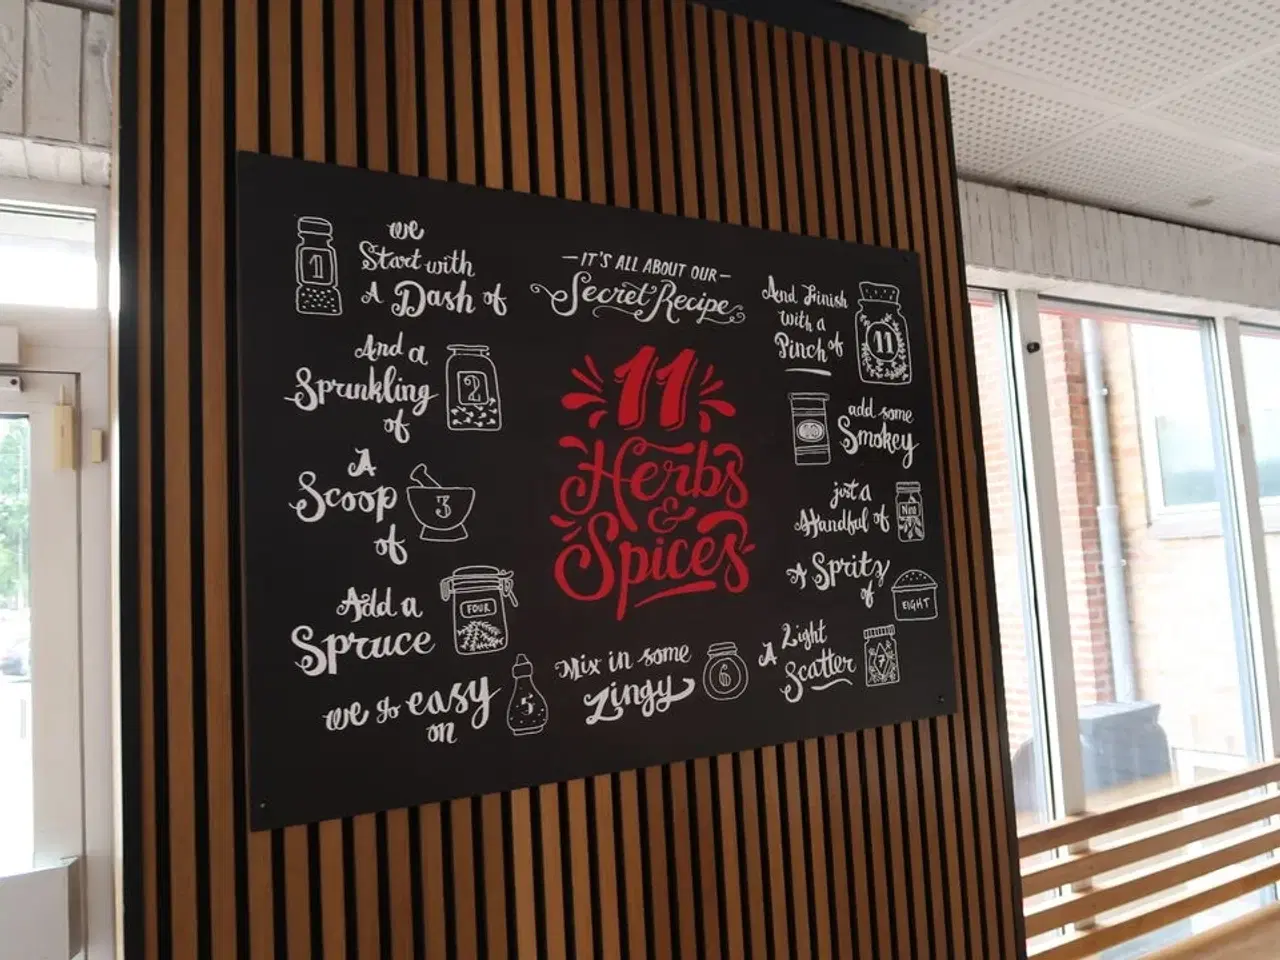 IT'S ALL ABOUT OUR
Secret Recipe
11
Herbs
&
Spices
we
Start with
A Dash of
1
And a
Sprinkling
of
2
A
Scoop
of
3
Add a
Spruce
FOUR
we go easy
on
5
Mix in some
Zingy
6
A Light
Scatter
7
A Spritz
of
EIGHT
just a
Handful of
add some
Smokey
And Finish
with a
Pinch of
11